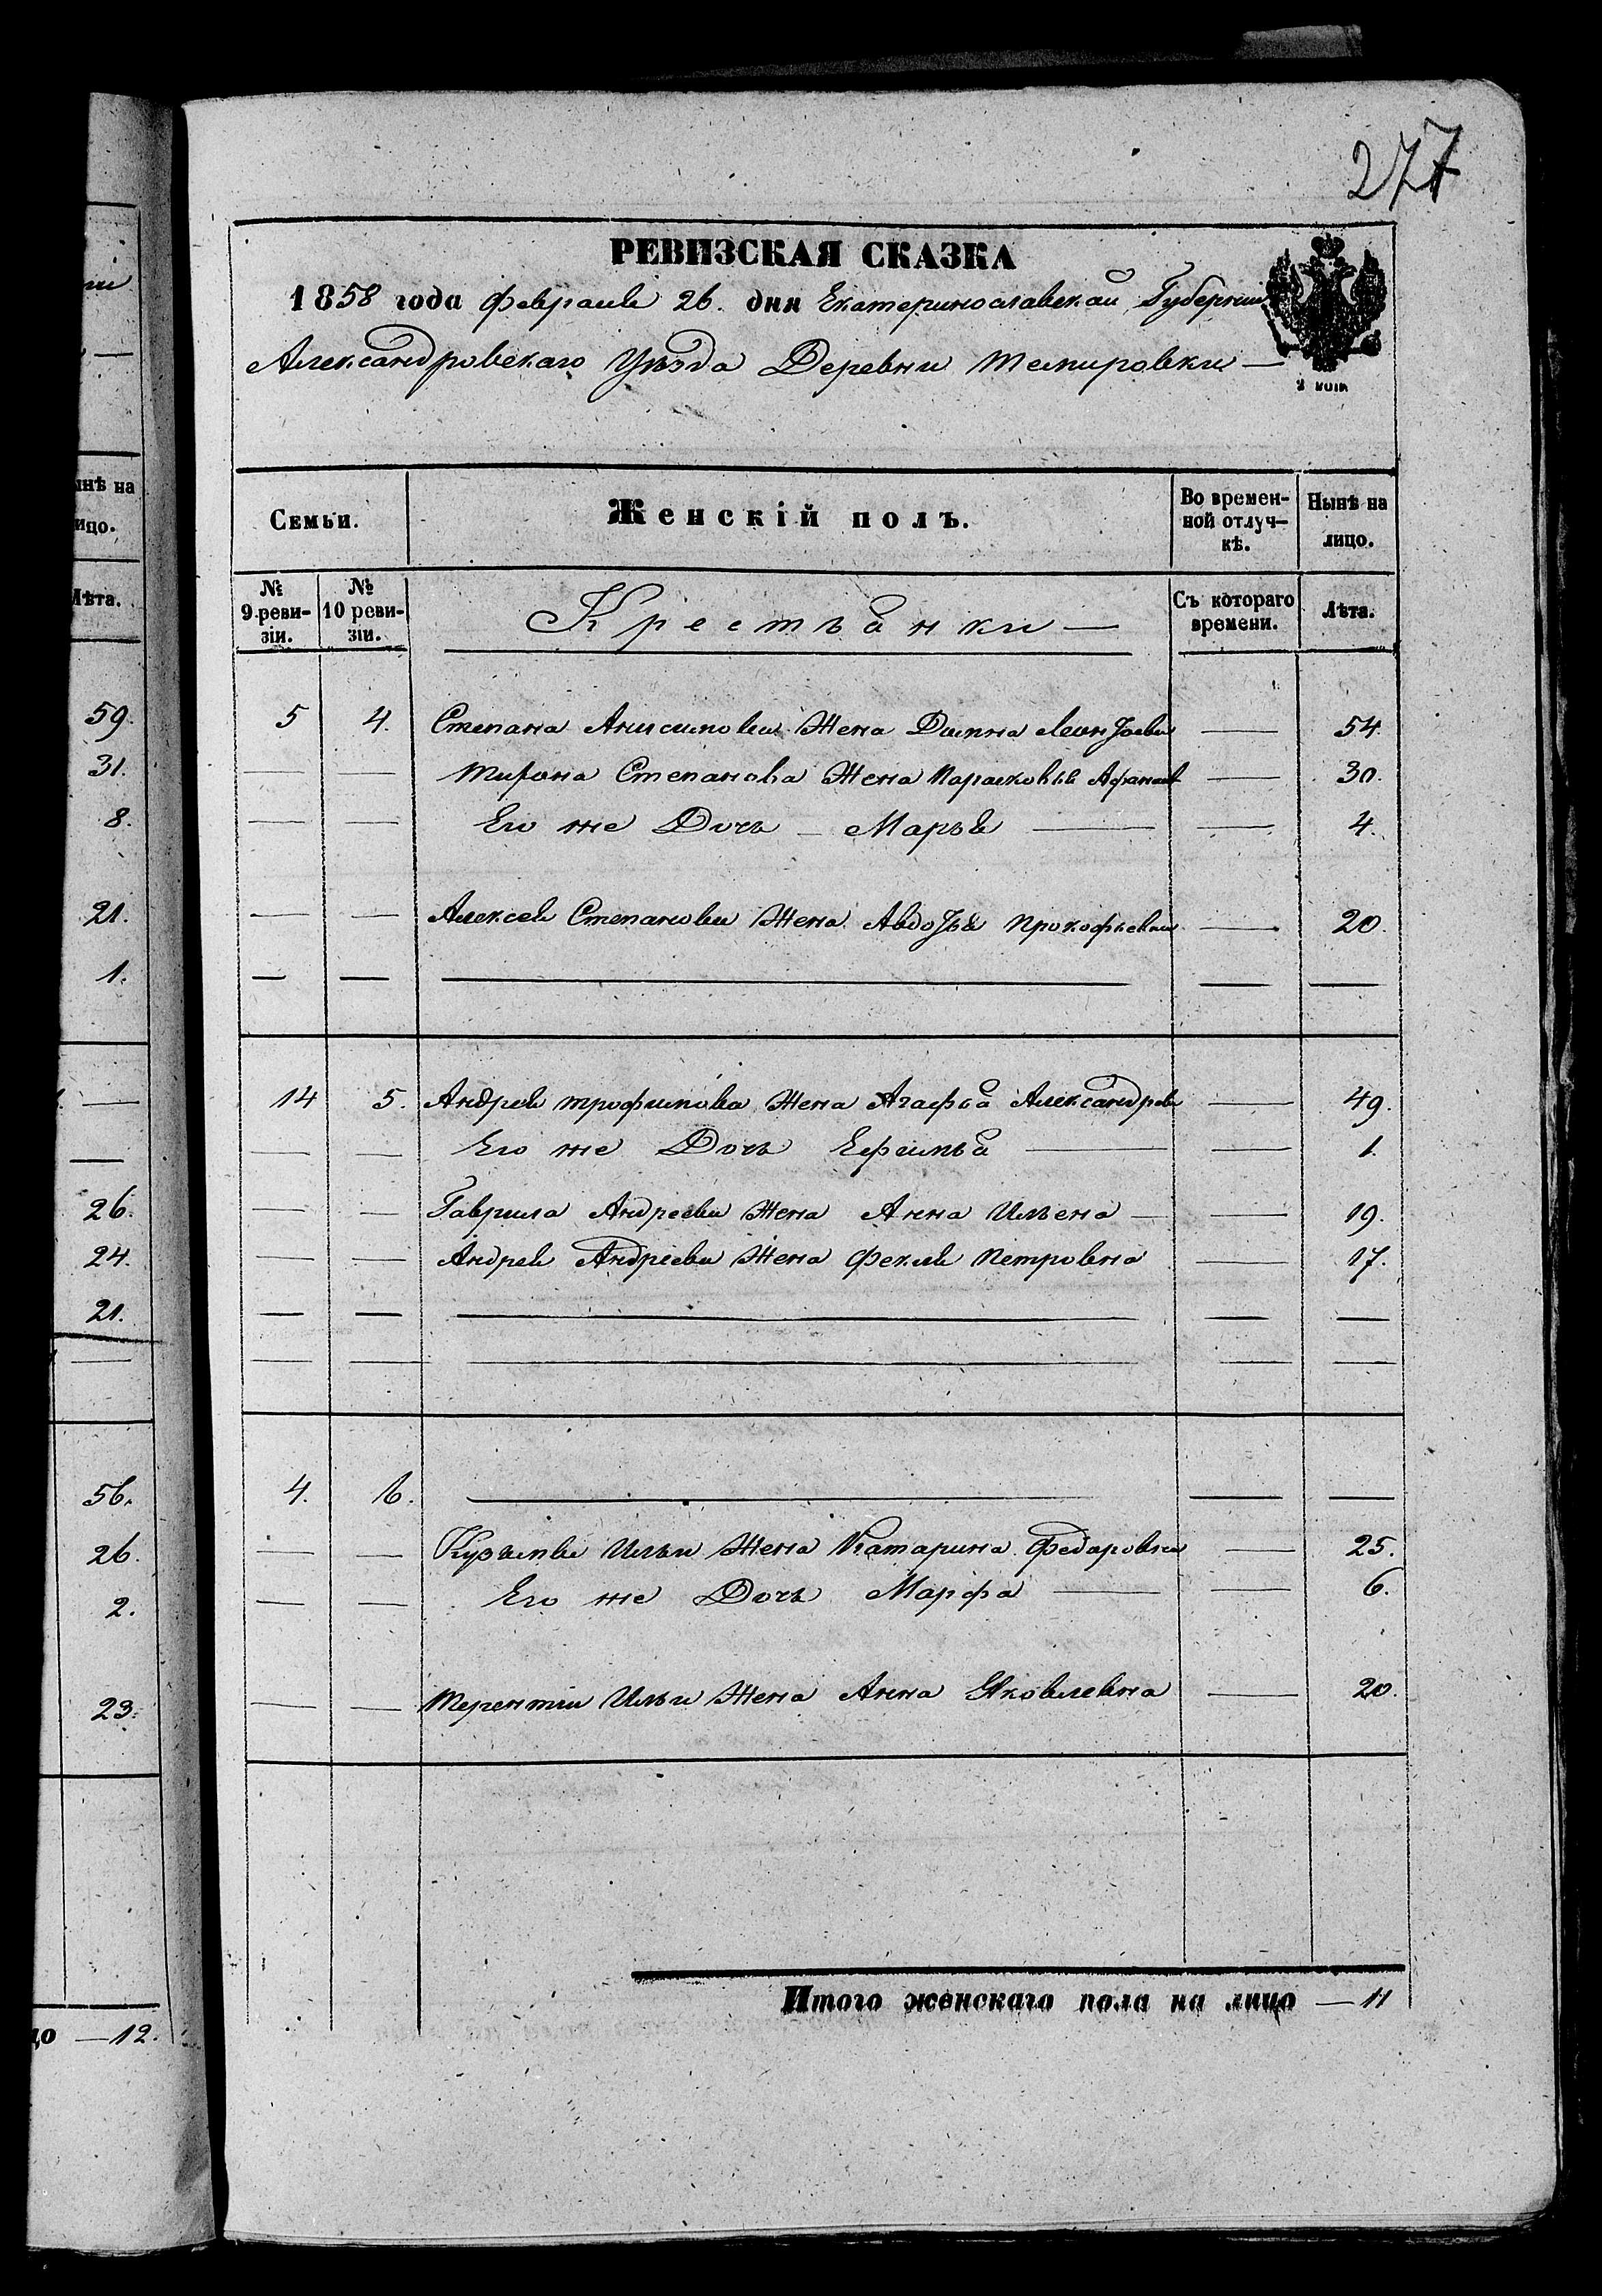 277
РЕВИЗСКАЯ СКАЗКА
1858 года февраля 26. дня Екатеринославской Губернии
Александровскаго Уѣзда Деревни Темировки —
3 коп
Семьи. Женскій полъ. Во времен-ной отлуч-кѣ. Нынѣ на лицо.
№ 9 реви-зіи. № 10 реви-зіи. Крестьянки — Съ котораго времени. Лѣта.
5 4. Степана Анисимова Жена Домна — 54.
— — Мирона Степанова Жена Парасковья Афанас — 30.
— — Его же Дочь — Марья — — 4.
— — Алексея Степанова Жена Авдотья Прокофьевна — 20.
— — — — —
14 5. Андрея Трофимова Жена Агафья Александров — 49.
— — Его же Дочь Ефимья — — 1.
— — Гаврила Андреева Жена Анна Ильена — — 19.
— — Андрея Андреева Жена Фекля Петровна — 17.
— — — — —
— — — — —
4. 6. — — —
— — Кузьмы Ильи Жена Катарина Федаровна — 25.
— — Его же Дочь Марфа — — 6.
— — Терентіи Ильи Жена Анна Яковлевна — 20.
Итого женскаго пола на лицо — 11
нѣ на
ицо.
Лѣта.
59.
31.
8.
21.
1.
—
—
26.
24.
21.
—
56.
26.
2.
23.
цо — 12.